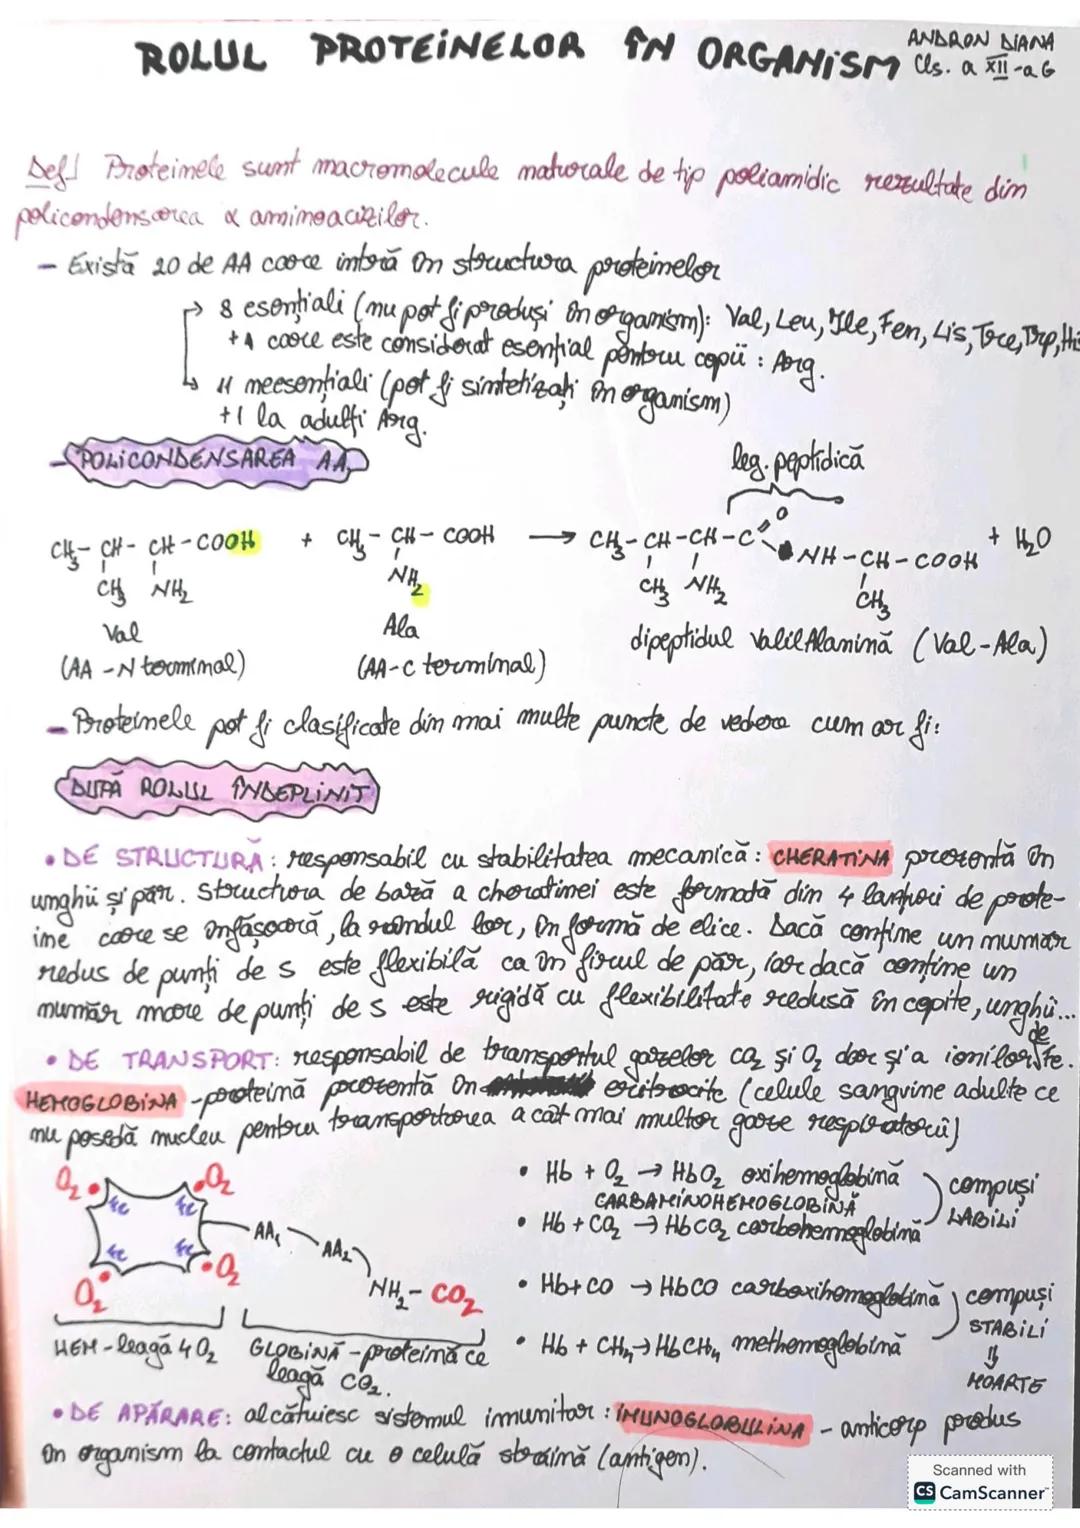 ROLUL PROTEINELOR ÎN ORGANISM
ANDRON DIANA
Cls. a XII-a G
Def! Proteinele sunt macromolecule naturale de tip poliamidic rezultate din
policondensarea α aminoacizilor.
- Există 20 de AA care intră în structura proteinelor
→ 8 esențiali (nu pot fi produși în organism): Val, Leu, Ile, Fen, Lis, Tre, Trp, His
+1 care este considerat esențial pentru copii : Arg.
→ 11 neesențiali (pot fi sintetizați în organism)
+1 la adulți Arg.
- POLICONDENSAREA AA
leg. peptidică
CH3 - CH - CH - COOH + CH3 - CH - COOH → CH3 - CH - CH - C = O NH - CH - COOH + H2O
CH3 NH2 NH2 CH3 NH2 CH3
Val Ala dipeptidul ValilAlanină (Val-Ala)
(AA - N terminal) (AA - C terminal)
- Proteinele pot fi clasificate din mai multe puncte de vedere cum ar fi:
DUPĂ ROLUL ÎNDEPLINIT
• DE STRUCTURĂ: responsabil cu stabilitatea mecanică: CHERATINA prezentă în
unghii și păr. Structura de bază a cheratinei este formată din 4 lanțuri de prote-
ine care se înfășoară, la rândul lor, în formă de elice. Dacă conține un număr
redus de punți de S este flexibilă ca în firul de păr, iar dacă conține un
număr mare de punți de S este rigidă cu flexibilitate redusă în copite, unghii...
• DE TRANSPORT: responsabil de transportul gazelor CO2 și O2 dar și a ionilor de Fe.
HEMOGLOBINA - proteină prezentă în eritrocite (celule sangvine adulte ce
nu posedă nucleu pentru transportarea a cât mai multor gaze respiratorii)
O2 O2
Fe Fe
Fe Fe
O2 O2
AA1 AA2 NH2 - CO2
HEM - leagă 4 O2
GLOBINĂ - proteină ce
leagă CO2.
• Hb + O2 → HbO2 oxihemoglobină
CARBAMINOHEMOGLOBINĂ
• Hb + CO2 → HbCO2 carbohemoglobină
compuși
LABILI
• Hb + CO → HbCO carboxihemoglobină
• Hb + CH4 → HbCH4 methemoglobină
compuși
STABILI
⇓
MOARTE
• DE APĂRARE: alcătuiesc sistemul imunitar : IMUNOGLOBULINA - anticorp produs
în organism la contactul cu o celulă străină (antigen).
Scanned with
CS CamScanner